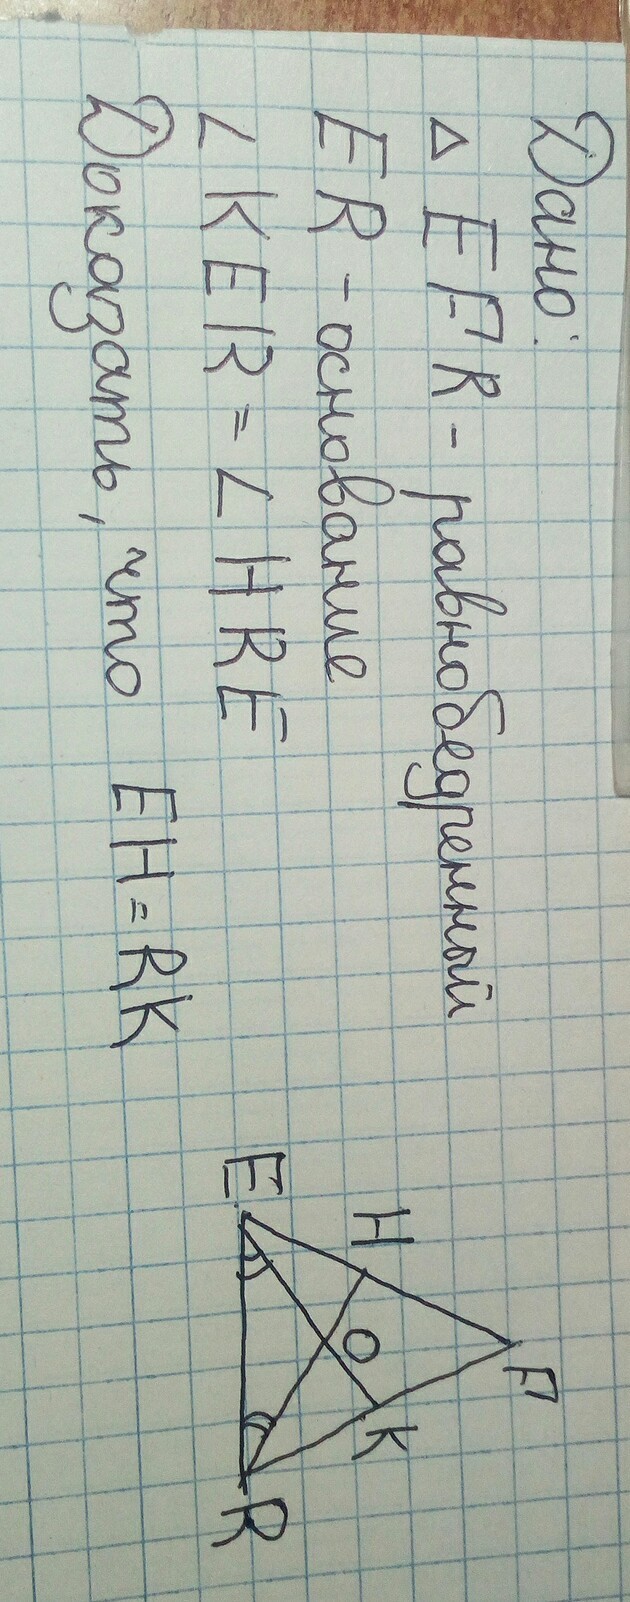 Дано:
△ EFR - равнобедренный
ER - основание
∠ KER = ∠ HRE
Доказать, что EH = RK
F
H
O
K
E
R